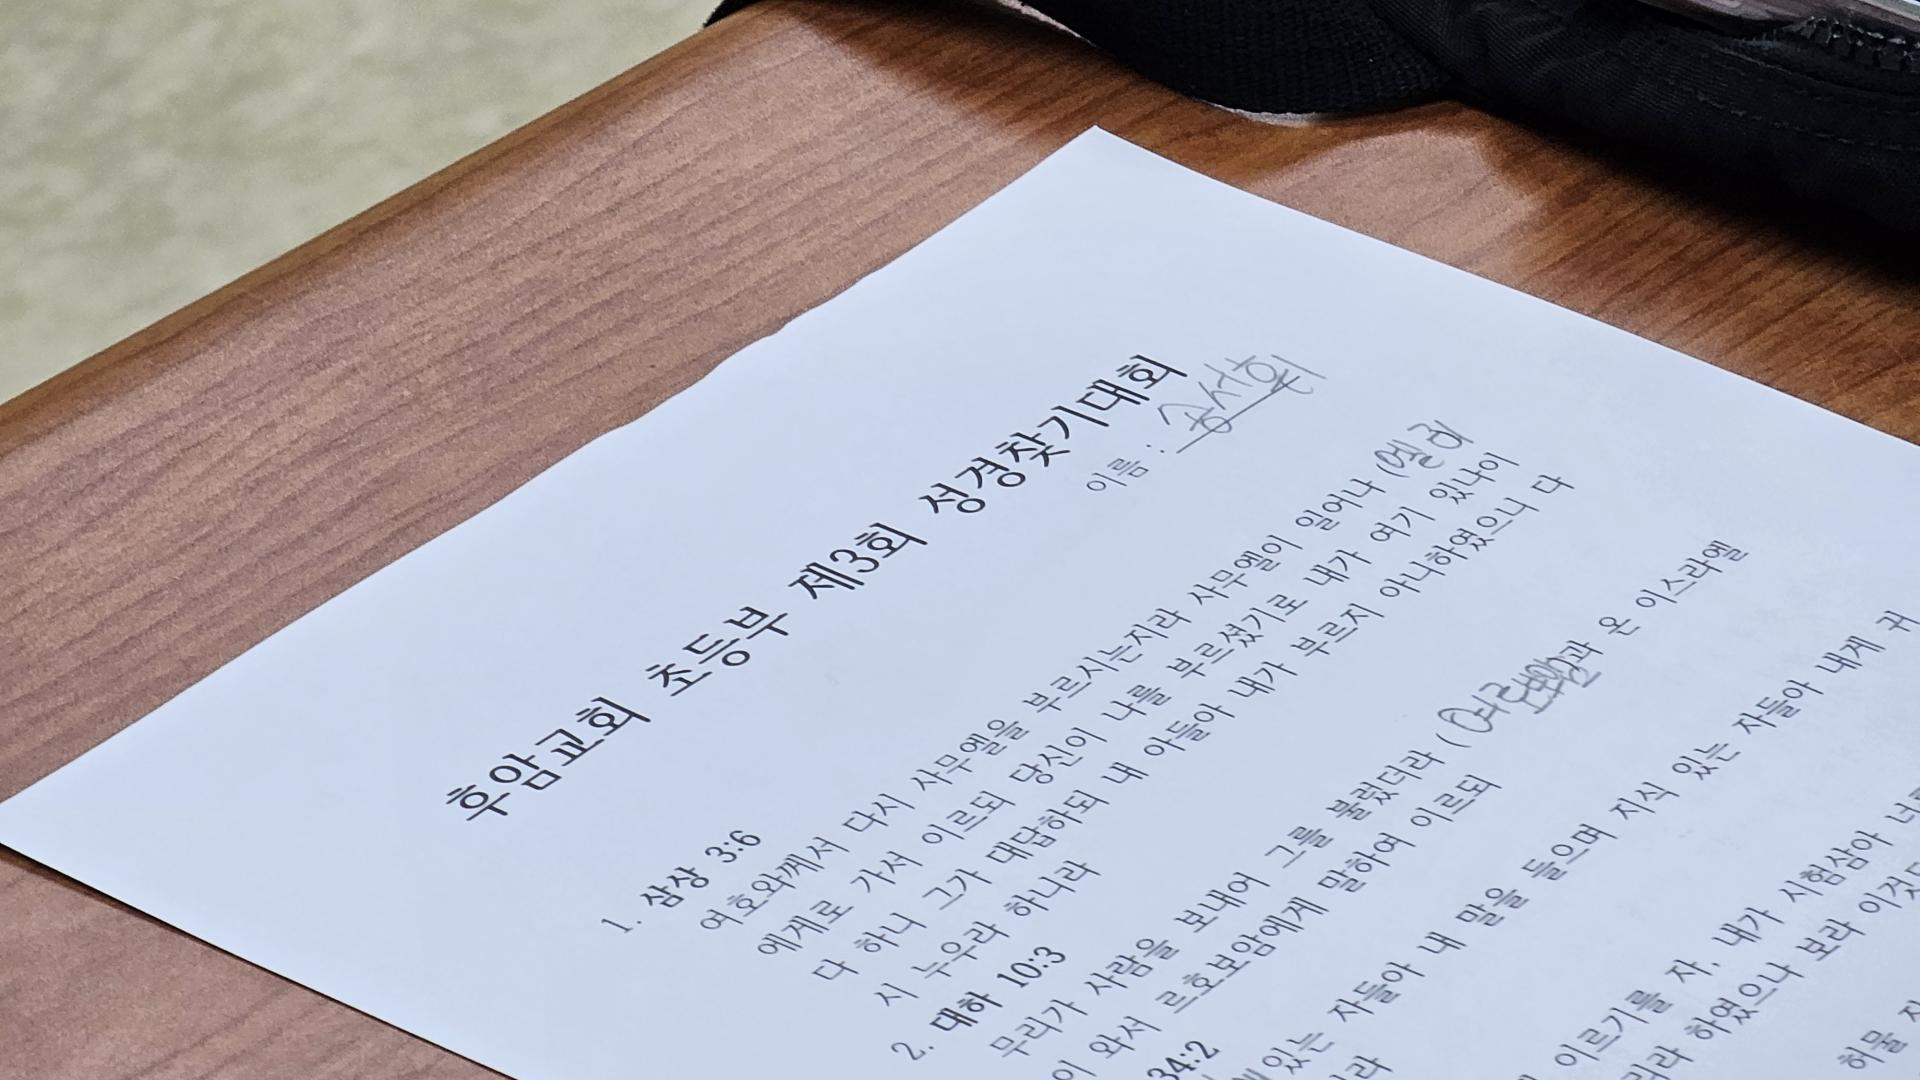 후암교회 초등부 제3회 성경찾기대회
이름 : 송서희
1. 삼상 3:6
여호와께서 다시 사무엘을 부르시는지라 사무엘이 일어나 (엘리
에게로 가서 이르되 당신이 나를 부르셨기로 내가 여기 있나이
다 하니 그가 대답하되 내 아들아 내가 부르지 아니하였으니 다
시 누우라 하니라
2. 대하 10:3
무리가 사람을 보내어 그를 불렀더라 (여로보암과 온 이스라엘
이 와서 르호보암에게 말하여 이르되
34:2
있는 자들아 내 말을 들으며 지식 있는 자들아 내게 귀
이르기를 자, 내가 시험삼아 너를
하였으나 보라 이것도
허물